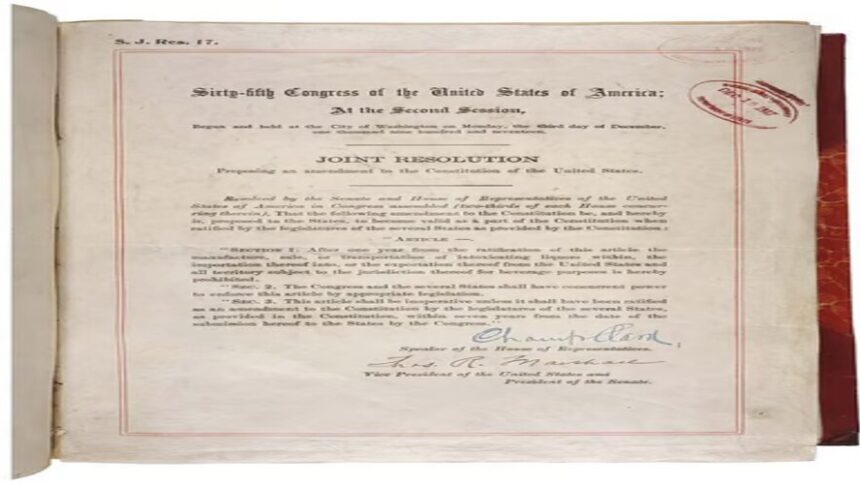 S. J. Res. 17.
DEC 19 1917
Sixty-fifth Congress of the United States of America;
At the Second Session,
Begun and held at the City of Washington on Monday, the third day of December,
one thousand nine hundred and seventeen.
JOINT RESOLUTION
Proposing an amendment to the Constitution of the United States.
Resolved by the Senate and House of Representatives of the United
States of America in Congress assembled (two-thirds of each House concur-
ring therein), That the following amendment to the Constitution be, and hereby
is, proposed to the States, to become valid as a part of the Constitution when
ratified by the legislatures of the several States as provided by the Constitution:
"ARTICLE —.
"SECTION 1. After one year from the ratification of this article the
manufacture, sale, or transportation of intoxicating liquors within, the
importation thereof into, or the exportation thereof from the United States and
all territory subject to the jurisdiction thereof for beverage purposes is hereby
prohibited.
"SEC. 2. The Congress and the several States shall have concurrent power
to enforce this article by appropriate legislation.
"SEC. 3. This article shall be inoperative unless it shall have been ratified
as an amendment to the Constitution by the legislatures of the several States,
as provided in the Constitution, within seven years from the date of the
submission hereof to the States by the Congress."
Champ Clark
Speaker of the House of Representatives.
Thos. R. Marshall
Vice President of the United States and
President of the Senate.